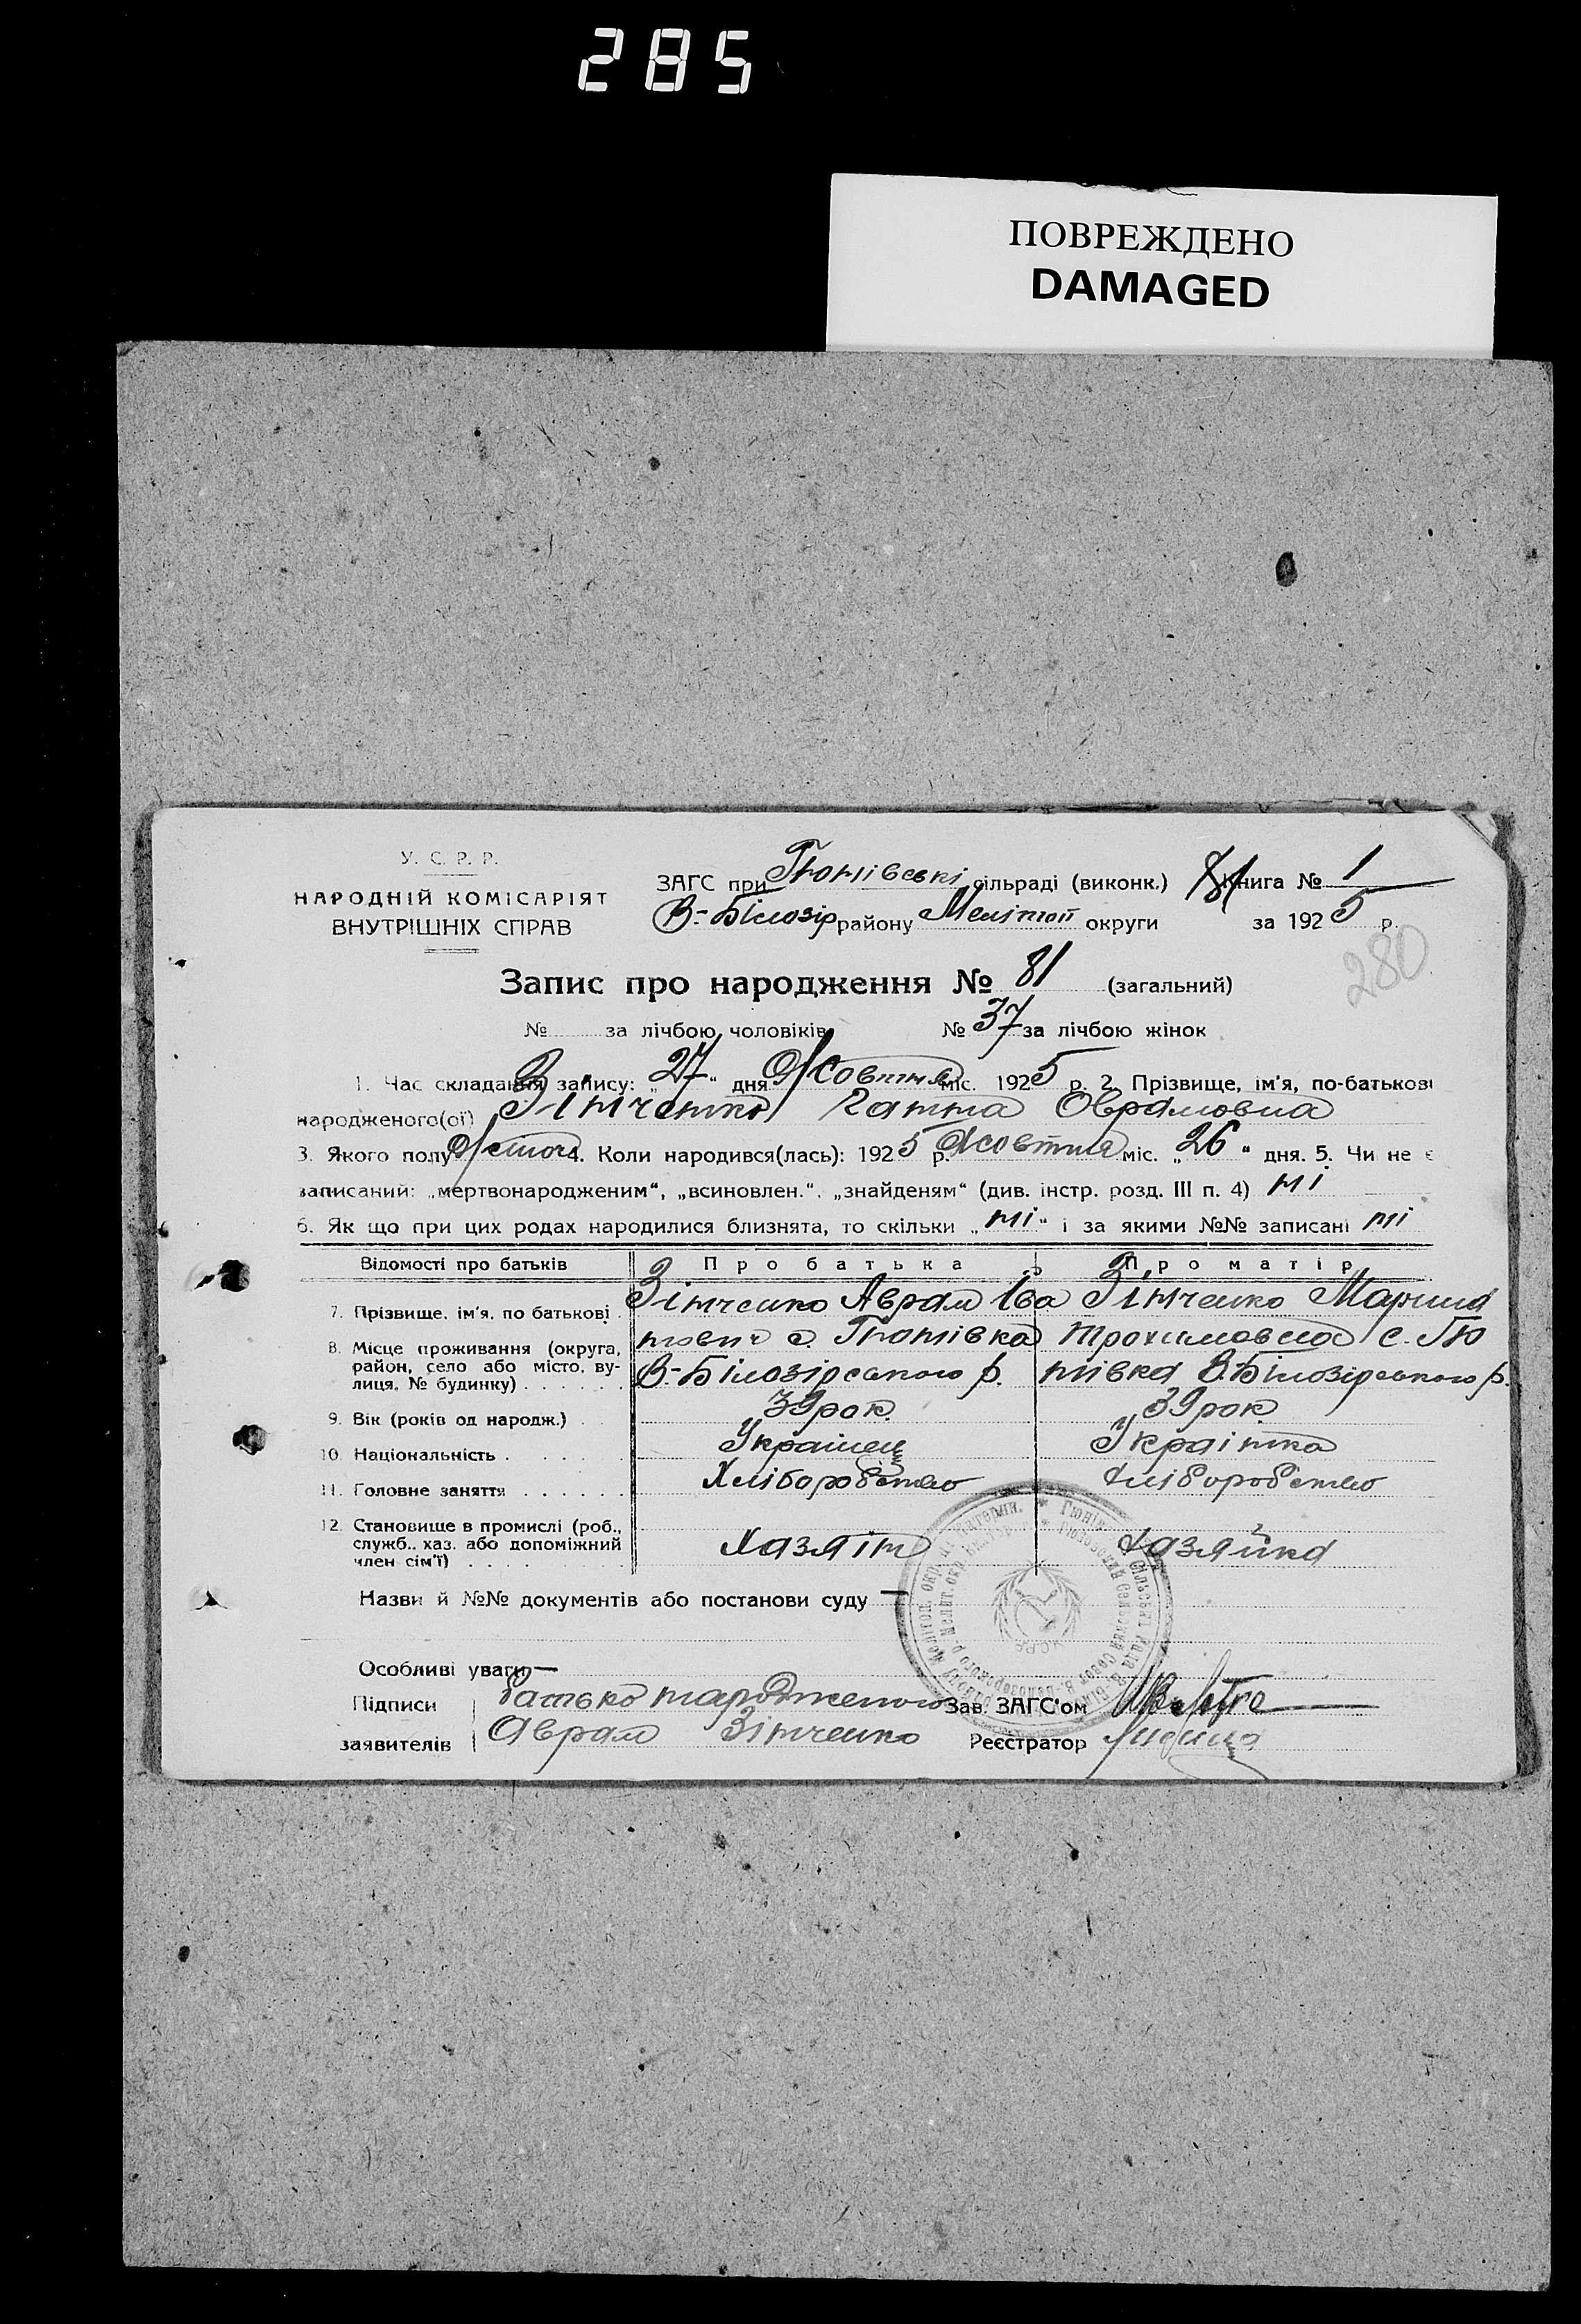 285
ПОВРЕЖДЕНО
DAMAGED
У. С. Р. Р.
НАРОДНІЙ КОМІСАРІЯТ
ВНУТРІШНІХ СПРАВ
ЗАГС при Гюнівській сільраді (виконк.) 81 Книга № 1
В-Білозір району Мелітоп округи за 1925 р.
280
Запис про народження № 81 (загальний)
№ за лічбою чоловіків № 37 за лічбою жінок
1. Час складання запису: „27“ дня Жовтня міс. 1925 р. 2. Прізвище, ім'я, по-батькові
народженого(ої) Зінченко Ганна Оврамовна
3. Якого полу жіноч 4. Коли народився(лась): 1925 р. Жовтня міс. „26“ дня. 5. Чи не є
записаний: „мертвонародженим“, „всиновлен.“, „знайденям“ (див. інстр. розд. III п. 4) ні
6. Як що при цих родах народилися близнята, то скільки „ні“ і за якими №№ записані ні
Відомості про батьків Про батька Про матір
7. Прізвище, ім'я, по батькові Зінченко Аврам Іва Зінченко Марина
8. Місце проживання (округа, район, село або місто, ву- лиця, № будинку) нович с. Гюнівка Трохимовна с. Гю
В-Білозірського р. нівка В.Білозірського р.
9. Вік (років од народж.) 39 рок. 39 рок
10. Національність Українец Українка
11. Головне заняття Хліборобство Хліборобство
12. Становище в промислі (роб., служб., хаз. або допоміжний член сім'ї) Хазяін Хазяйка
Назви й №№ документів або постанови суду —
Особливі уваги —
Підписи Батько народженого Зав. ЗАГС'ом
заявителів Аврам Зінченко Реєстратор